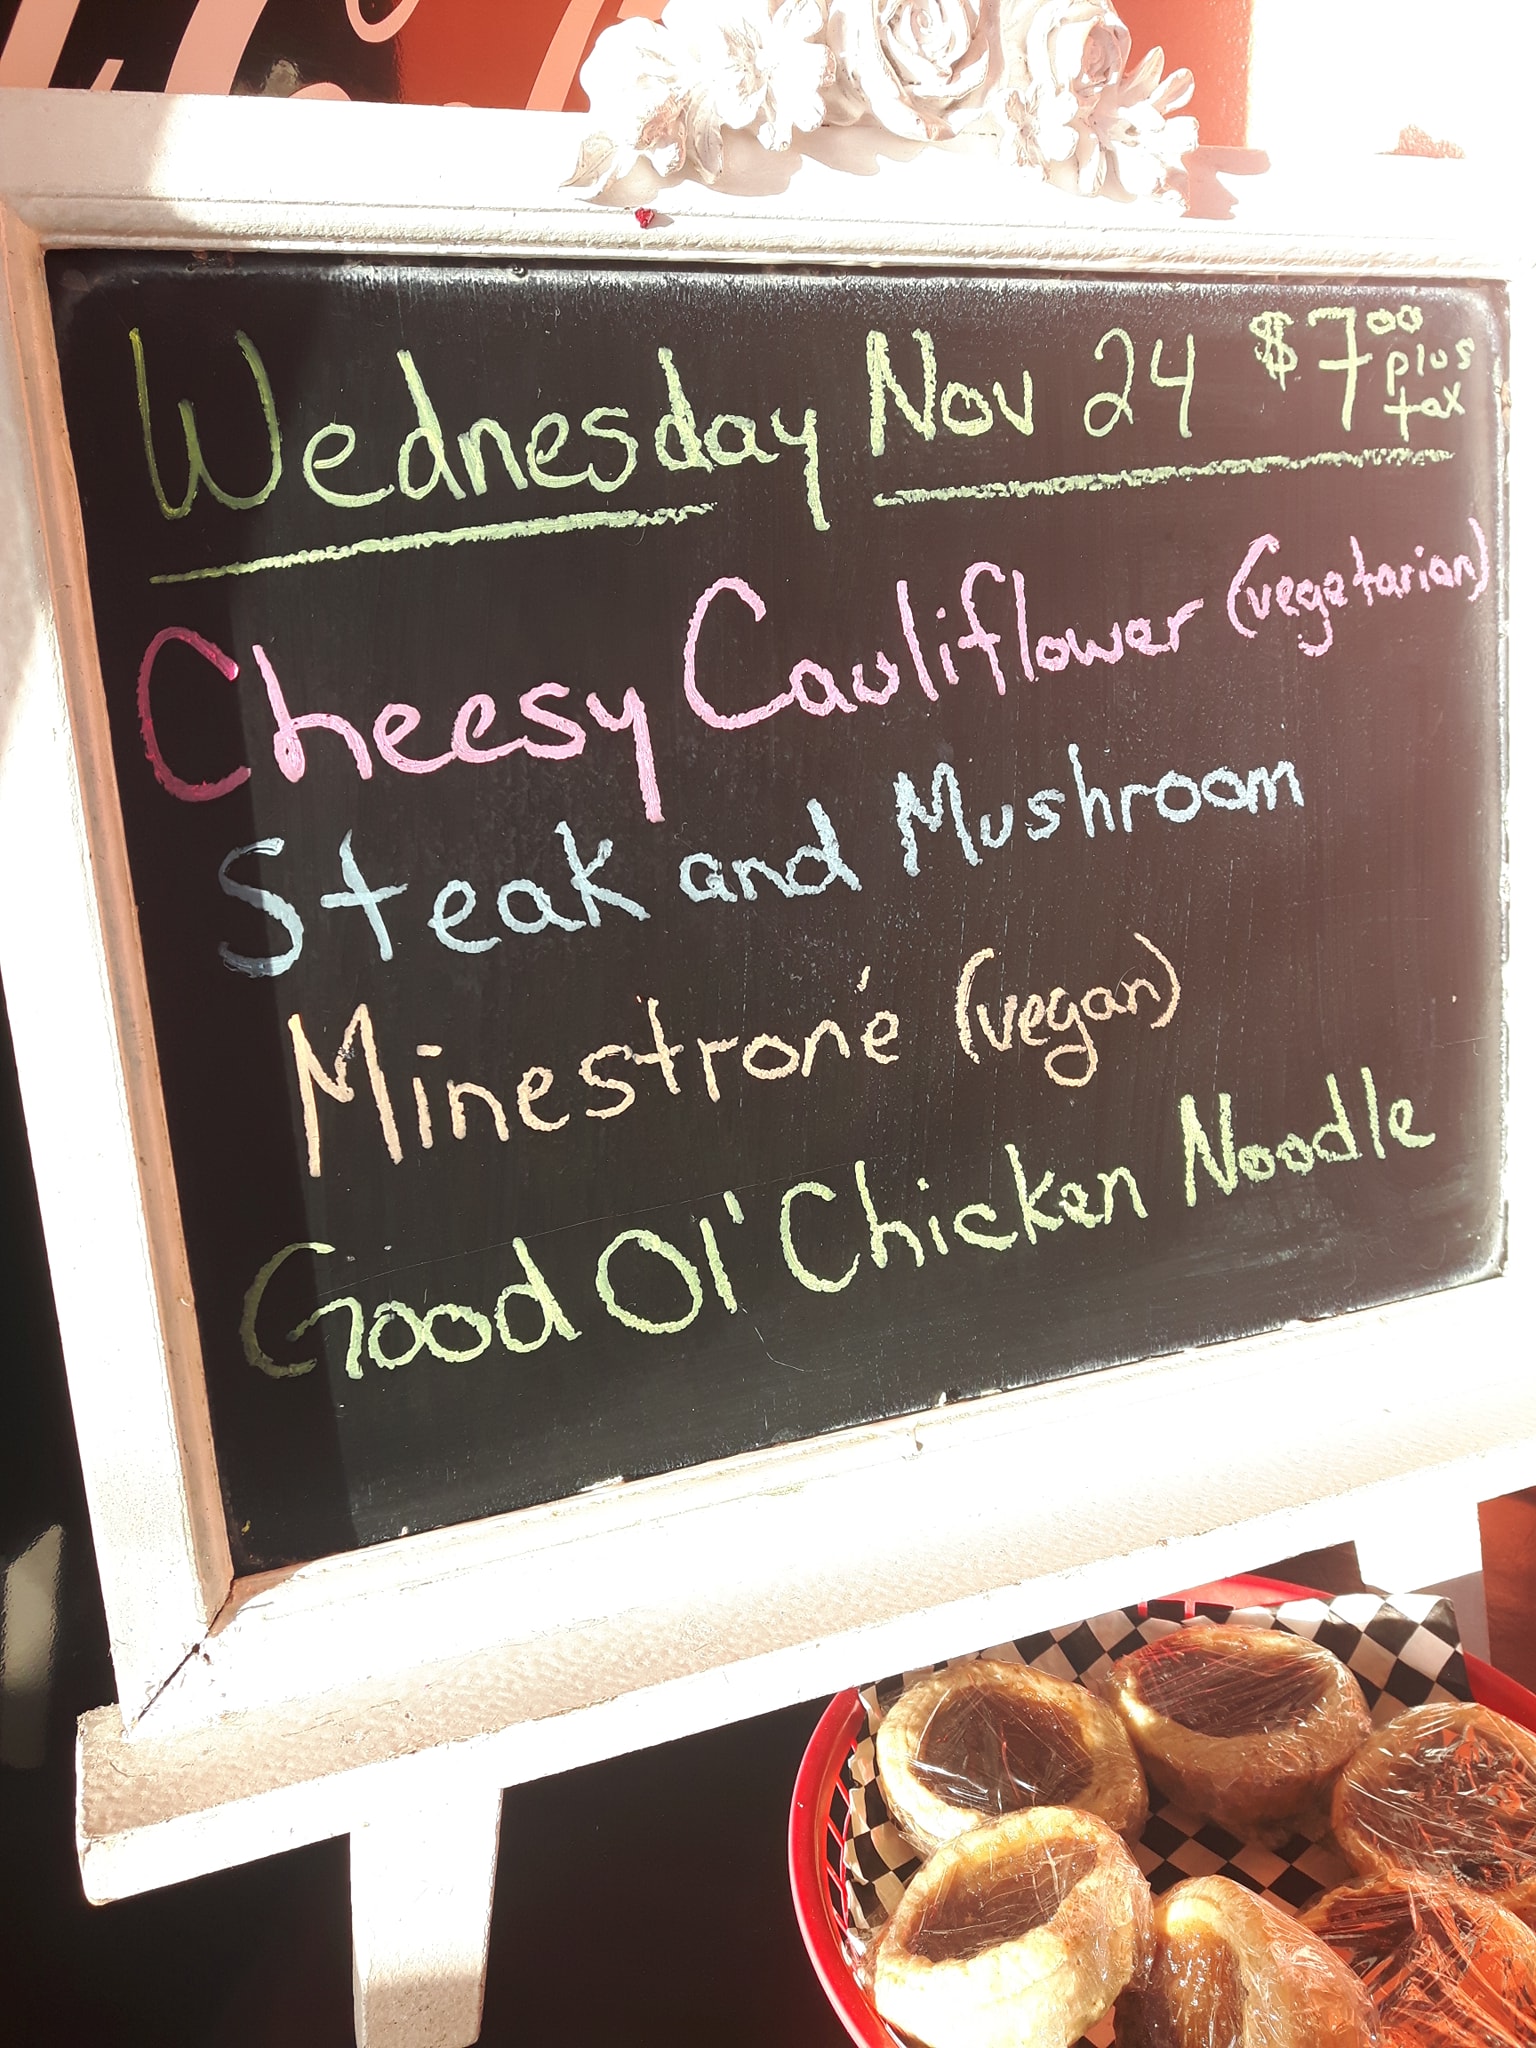 Wednesday Nov 24 $7.00 plus tax
Cheesy Cauliflower (vegetarian)
Steak and Mushroom
Minestroné (vegan)
Good Ol' Chicken Noodle